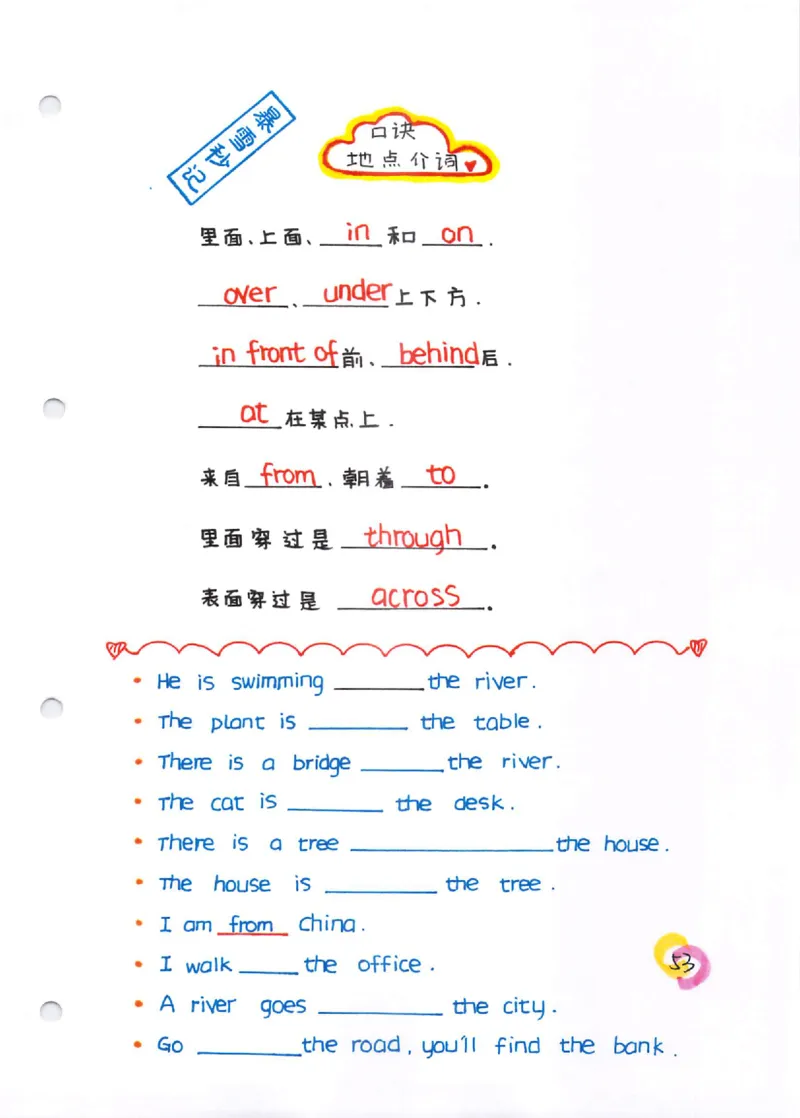 暴雪秒记
口诀
地点介词
里面、上面、 in 和 on .
over 、 under 上下方 .
in front of 前、 behind 后 .
at 在某点上 .
来自 from 、朝着 to .
里面穿过是 through .
表面穿过是 across .
He is swimming ________ the river .
The plant is ________ the table .
There is a bridge ________ the river .
The cat is ________ the desk .
There is a tree ________________ the house .
The house is ________ the tree .
I am from China .
I walk _____ the office .
A river goes __________ the city .
Go ________ the road , you'll find the bank .
53